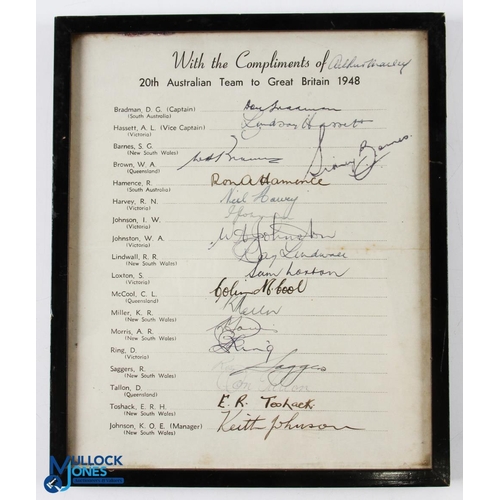 With the Compliments of
20th Australian Team to Great Britain 1948
Bradman, D. G. (Captain) Don Bradman
(South Australia)
Hassett, A. L. (Vice Captain) Lindsay Hassett
(Victoria)
Barnes, S. G. Sidney Barnes
(New South Wales)
Brown, W. A.
(Queensland)
Hamence, R. Ron A Hamence
(South Australia)
Harvey, R. N. Neil Harvey
(Victoria)
Johnson, I. W.
(Victoria)
Johnston, W. A. W A Johnston
(Victoria)
Lindwall, R. R. Ray Lindwall
(New South Wales)
Loxton, S. Sam Loxton
(Victoria)
McCool, C. L. Colin McCool
(Queensland)
Miller, K. R.
(New South Wales)
Morris, A. R.
(New South Wales)
Ring, D. Ring
(Victoria)
Saggers, R. Saggers
(New South Wales)
Tallon, D. Tallon
(Queensland)
Toshack, E. R. H. E. R. Toshack
(New South Wales)
Johnson, K. O. E. (Manager) Keith Johnson
(New South Wales)
MULLOCK
JONES